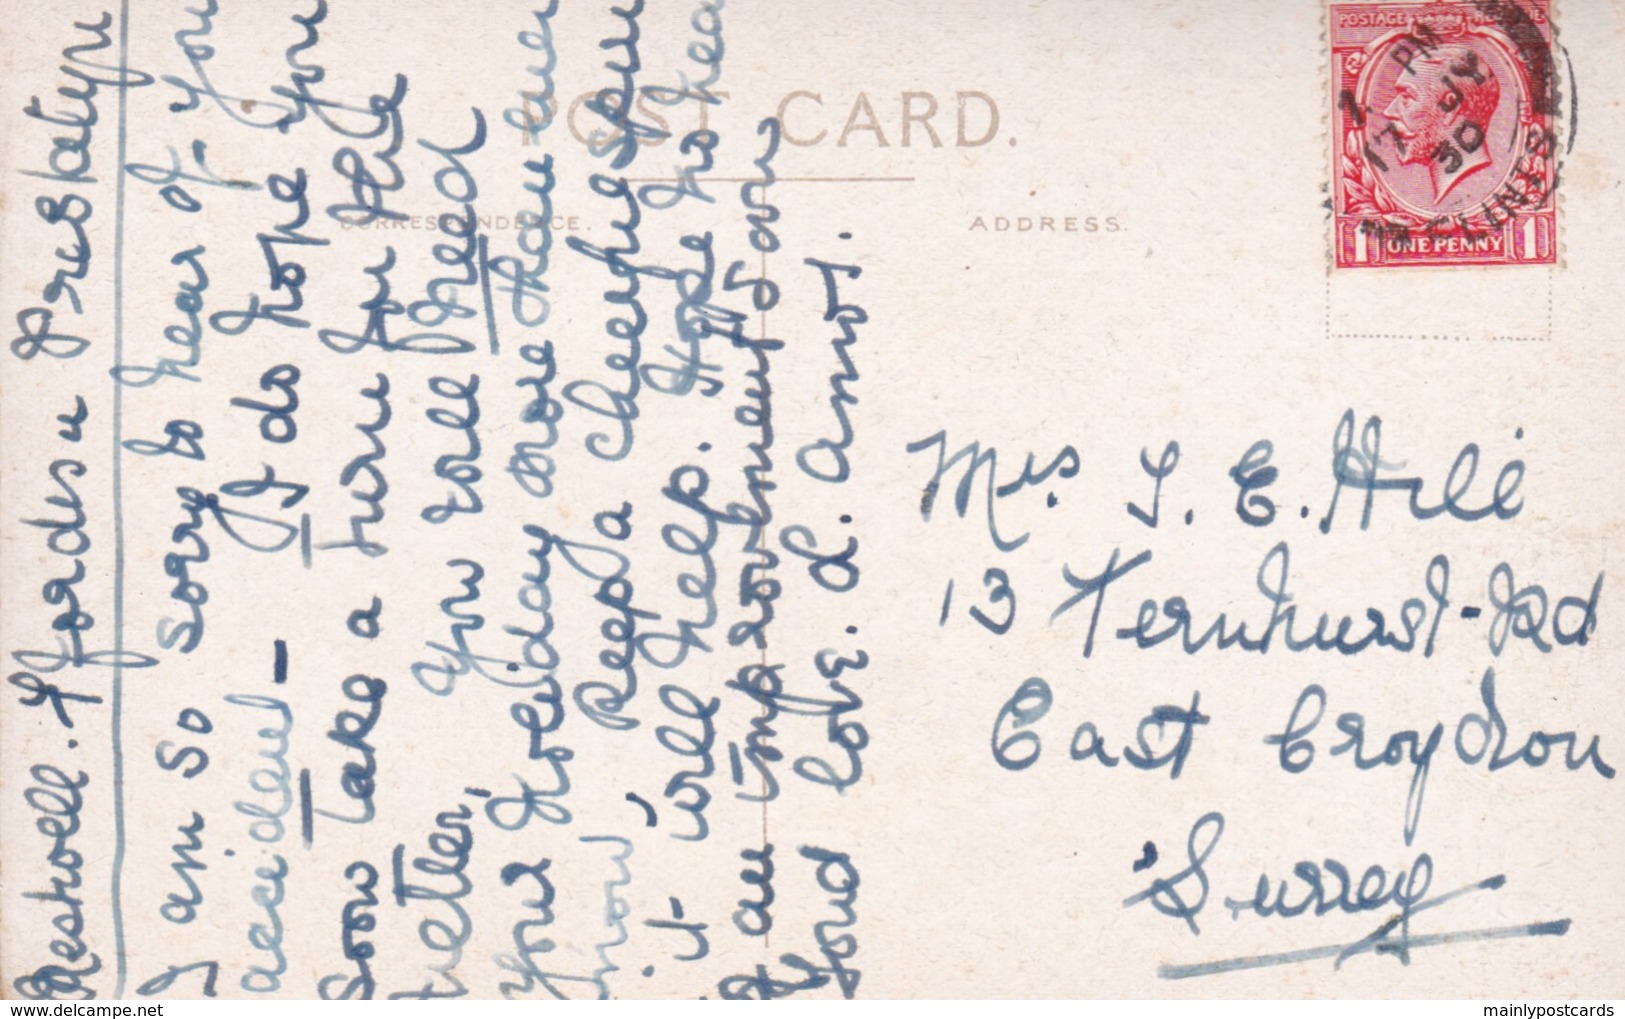 Resthvell. Ffordisa Prestatyn
I am so sorry to hear of your
accident - I do hope you
soon take a turn for the
better, You will need
your Holiday more than ever
now, Keep a cheerful
it will help. Hope to hear
of an improvement soon
Fond love. L. Amos.
POST CARD.
CORRESPONDENCE.
ADDRESS.
POSTAGE
1 ONE PENNY 1
1. PM
17 JY
30
FLINTS
Mrs. T. E. Hill
13 Fernhurst-Rd
East Croydon
Surrey
mainlypostcards